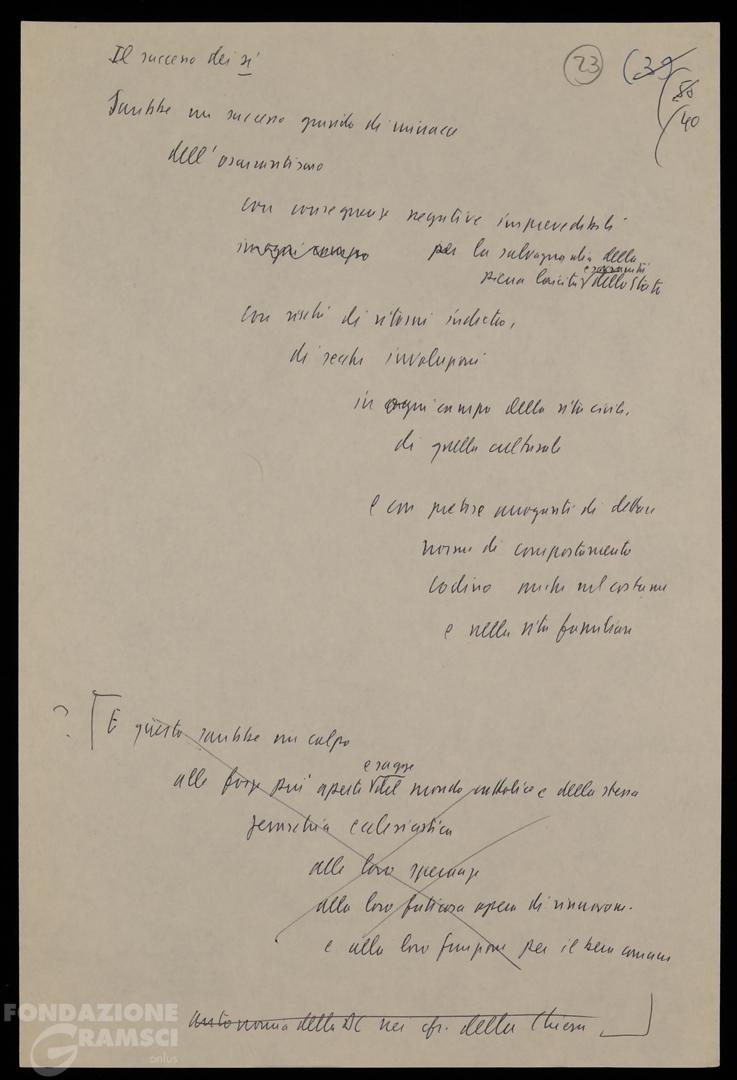 Il successo dei sì
23
(39
80
40
Sarebbe un successo gravido di minacce
dell'oscurantismo
con conseguenze negative imprevedibili
in ogni campo per la salvaguardia della
e sovranità
piena laicità dello Stato
con rischi di ritorni indietro,
di secche involuzioni
in ogni campo della vita civile,
di quella culturale
e con pretese arroganti di dettare
norme di comportamento
codino anche nel costume
e nella vita familiare
? E questo sarebbe un colpo
e sagge
alle forze più aperte del mondo cattolico e della stessa
gerarchia ecclesiastica
alle loro speranze
alla loro faticosa opera di rinnovam.
e alla loro funzione per il bene comune
autonomia della DC nei cfr. della Chiesa
FONDAZIONE
GRAMSCI
onlus